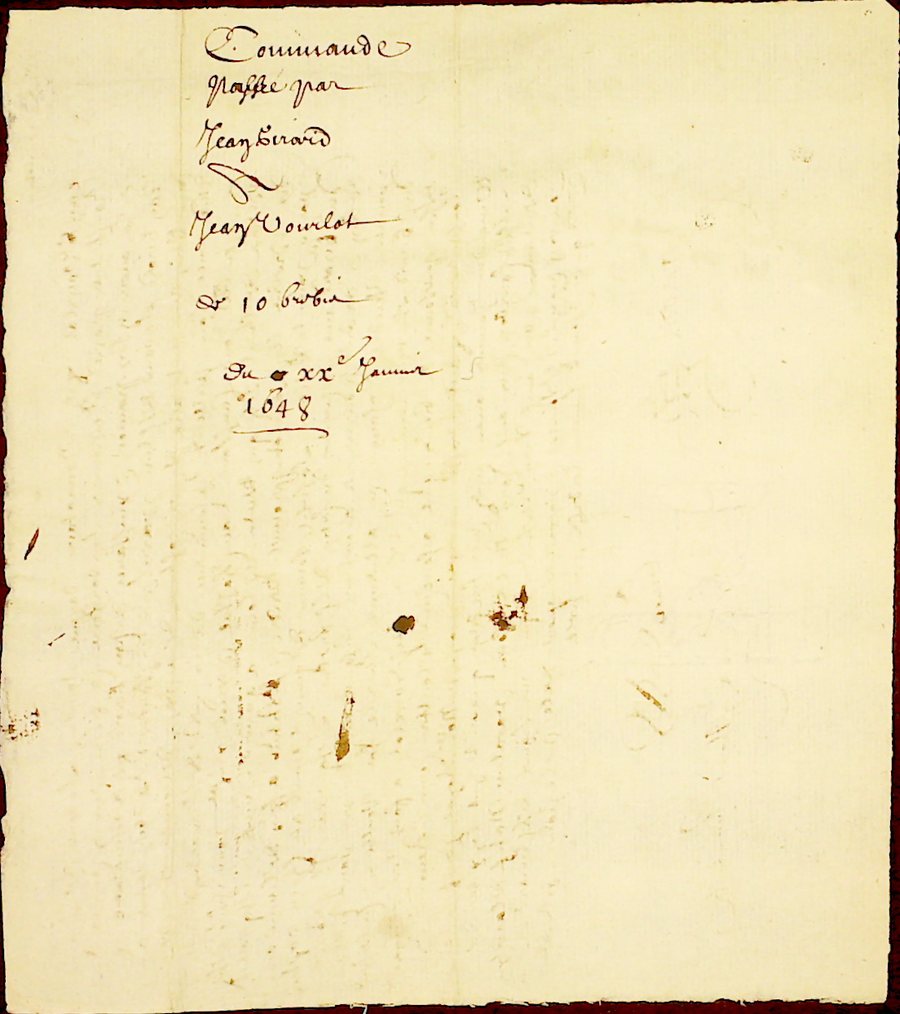 Commande
passée par
Jean Girard
A
Jean Vourlat
de 10 brebis
du XXe Januier
1648